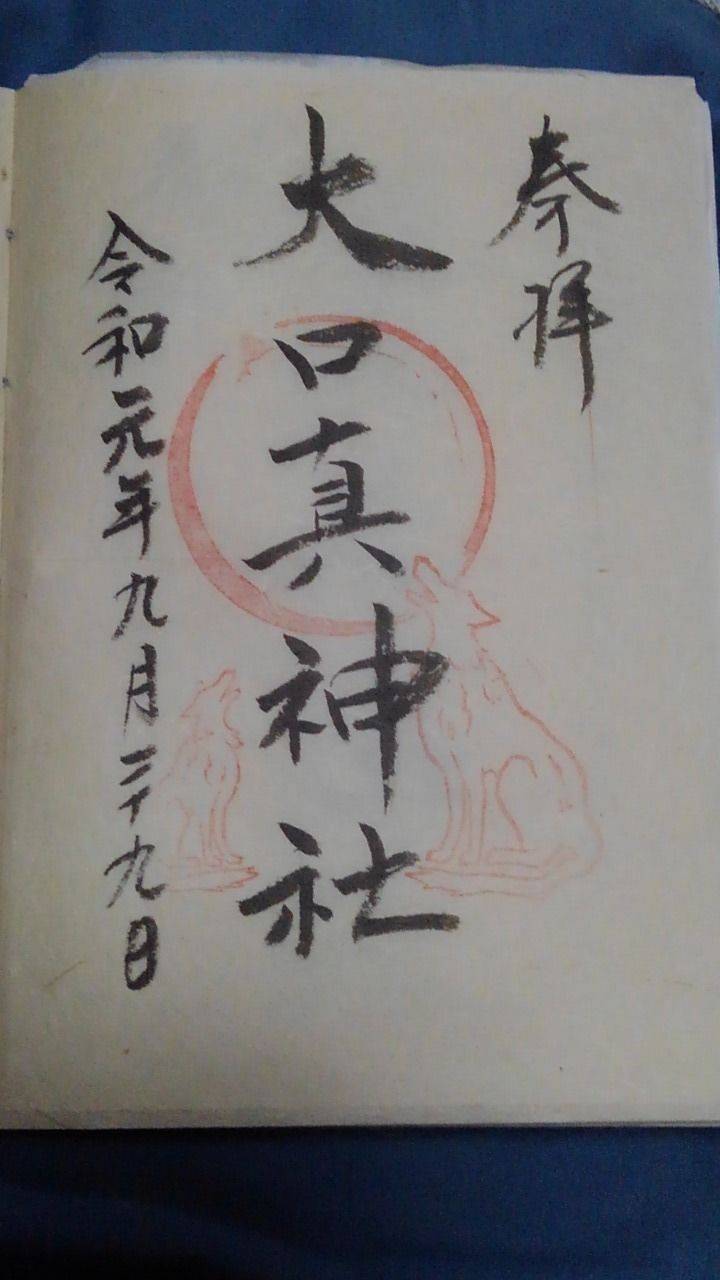 奉拝
大口真神社
令和元年九月二十九日